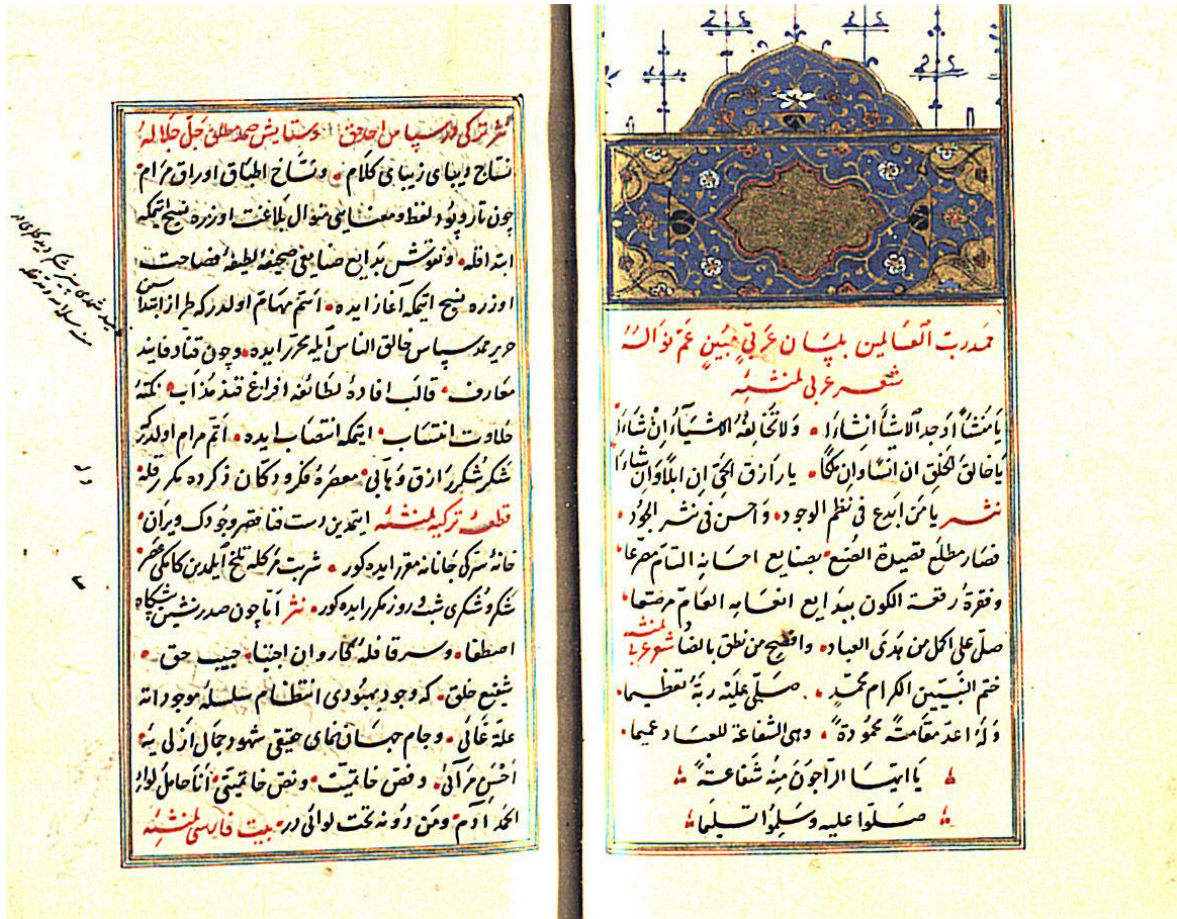 حمد رب العالمين بلسان عربي مبين عم نواله
شعر عربي لمنشئه
يا منشأ اوجد الاشأ انشاءا ولا تخالفه الاشياء ان شاءا
يا خالق الخلق ان انسا وان ملكا يا رازق الحي ان ابلا وان شاءا
نثر يا من ابدع في نظم الوجود واحسن في نثر الجود
فصار مطلع قصيدة الصنع بصنايع احسانه التام مصرعا
وفقرة رقعة الكون ببدايع انعامه العام مرصعا
صلى على اكمل من هدى العباد وافصح من نطق بالضاد شعر عربي لمنشئه
ختم النبيين الكرام محمد صلى عليه ربه تعظيما
وله اعد مقامة محمودة وهي الشفاعة للعباد عميما
يا ايها الراجون منه شفاعة
صلوا عليه وسلموا تسليما
نثر تركي در سپاس احد حق وستايش صمد مطلق جل جلاله
نساج ديباى زيباى كلام ونساخ اطباق اوراق مرام
چون تار وپود لفظ ومعنايى منوال بلاغت اوزره نسج ايتمكه
ابتدا قله ونقوش بدايع صنايعى صحيفۀ لطيفۀ فصاحت
اوزره نسخ ايتمكه آغاز ايده اهم مهام اولدر كه طراز ابتداسن
حرير حمد سپاس خالق الناس ايله محرر ايده وچون قناد قايند
معارف قالب افادۀ لطائفه افراغ قند مذاب نكتۀ
حلاوت انتساب ايتمكه انتصاب ايده اتم مرام اولدر كه
شكر شكر رازق وهابى معصرۀ فكر ودكان ذكرده مكرر قله
قطعۀ تركيه لمنشئه ايتمدين دست فنا قصر وجودك ويران
خانۀ سركى جانانه مقر ايده كور شربت مركله تلخ ايلمدين كامكى عصر
شكر وشكرى شب وروز مكرر ايده كور نثر اتا چون صدر نشين پيشگاه
اصطفا وسر قافلۀ كاروان اجتبا حبيب حق
شفيع خلق كه وجود بهبودى انتظام سلسلۀ موجوداته
علة غائى وجام جهان نماى حقيقى شهود جمال ازلى يه
احسن مرآئى وفص خاتميت ونص خاتميتى انا حامل لواء
الحمد آدم ومن دونه تحت لوائى در بيت فارسى لمنشئه